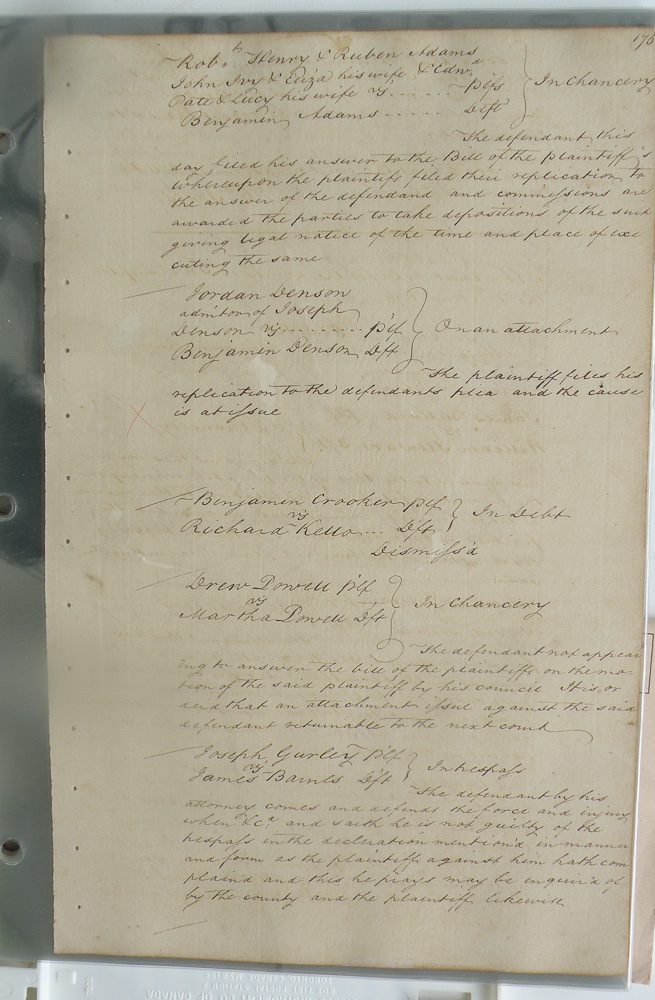 175
Rob.t Henry & Ruben Adams
John Ivy & Eliza his wife & Edw.d
Pate & Lucy his wife vs ...... Plfs
In Chancery
Benjamin Adams ..... Deft
The defendant this
day filed his answer to the Bill of the plaintiff's
whereupon the plaintiffs filed their replication to
the answer of the defendand and commissions are
awarded the parties to take depositions of the suit
giving legal notice of the time and place of exe
cuting the same
Jordan Denson
admitor of Joseph
Denson vs ......... Plf
On an attachment
Benjamin Denson Dft
The plaintiff files his
replication to the defendants plea and the cause
is at issue
Benjamin Crooker Plf
vs
In Debt
Richard Kello ... Dft
Dismiss'd
Drew Powell Plf
vs
In Chancery
Martha Powell Dft
The defendant not appear
ing to answer the bill of the plaintiffs on the mo-
tion of the said plaintiff by his council It is or
derd that an attachment issue against the said
defendant returnable to the next court
Joseph Gurley Plf
vs
In trespass
James Barnes Dft
The defendant by his
attorney comes and defends the force and injury
when &c.a and saith he is not guilty of the
trespass in the declaration mention'd in manner
and form as the plaintiffs against him hath com
plain'd and this he prays may be enquir'd of
by the county and the plaintiff likewise